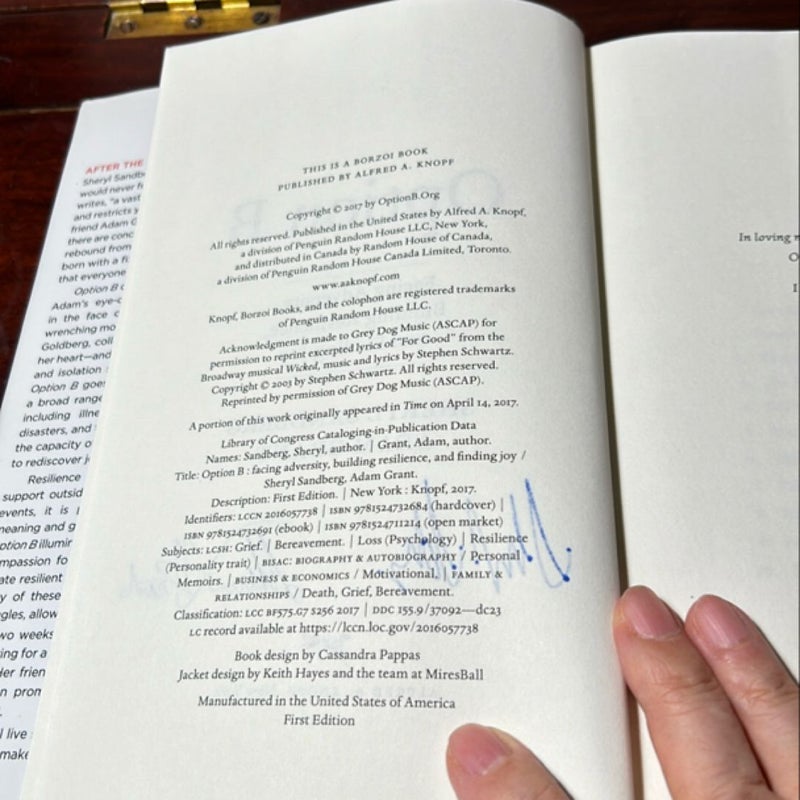 AFTER THE
Sheryl Sandb
would never fi
writes, "a vast
and restricts y
friend Adam G
there are conc
rebound from
born with a fi
that everyone
Option B c
Adam's eye-o
in the face c
wrenching mo
Goldberg, coll
her heart—and
and isolation
Option B goes
a broad range
including illne
disasters, and
the capacity o
to rediscover
Resilience
support outsid
events, it is
meaning and g
ption B illumir
mpassion fo
ate resilient
y of these
gles, allow
wo weeks
ing for a
er frien
n prom
l live
make
THIS IS A BORZOI BOOK
PUBLISHED BY ALFRED A. KNOPF
Copyright © 2017 by OptionB.Org
All rights reserved. Published in the United States by Alfred A. Knopf,
a division of Penguin Random House LLC, New York,
and distributed in Canada by Random House of Canada,
a division of Penguin Random House Canada Limited, Toronto.
www.aaknopf.com
Knopf, Borzoi Books, and the colophon are registered trademarks
of Penguin Random House LLC.
Acknowledgment is made to Grey Dog Music (ASCAP) for
permission to reprint excerpted lyrics of "For Good" from the
Broadway musical Wicked, music and lyrics by Stephen Schwartz.
Copyright © 2003 by Stephen Schwartz. All rights reserved.
Reprinted by permission of Grey Dog Music (ASCAP).
A portion of this work originally appeared in Time on April 14, 2017.
Library of Congress Cataloging-in-Publication Data
Names: Sandberg, Sheryl, author. | Grant, Adam, author.
Title: Option B : facing adversity, building resilience, and finding joy /
Sheryl Sandberg, Adam Grant.
Description: First Edition. | New York : Knopf, 2017.
Identifiers: LCCN 2016057738 | ISBN 9781524732684 (hardcover) |
ISBN 9781524732691 (ebook) | ISBN 9781524711214 (open market)
Subjects: LCSH: Grief. | Bereavement. | Loss (Psychology) | Resilience
(Personality trait) | BISAC: BIOGRAPHY & AUTOBIOGRAPHY / Personal
Memoirs. | BUSINESS & ECONOMICS / Motivational. | FAMILY &
RELATIONSHIPS / Death, Grief, Bereavement.
Classification: LCC BF575.G7 S256 2017 | DDC 155.9/37092—dc23
LC record available at https://lccn.loc.gov/2016057738
Book design by Cassandra Pappas
Jacket design by Keith Hayes and the team at MiresBall
Manufactured in the United States of America
First Edition
In loving